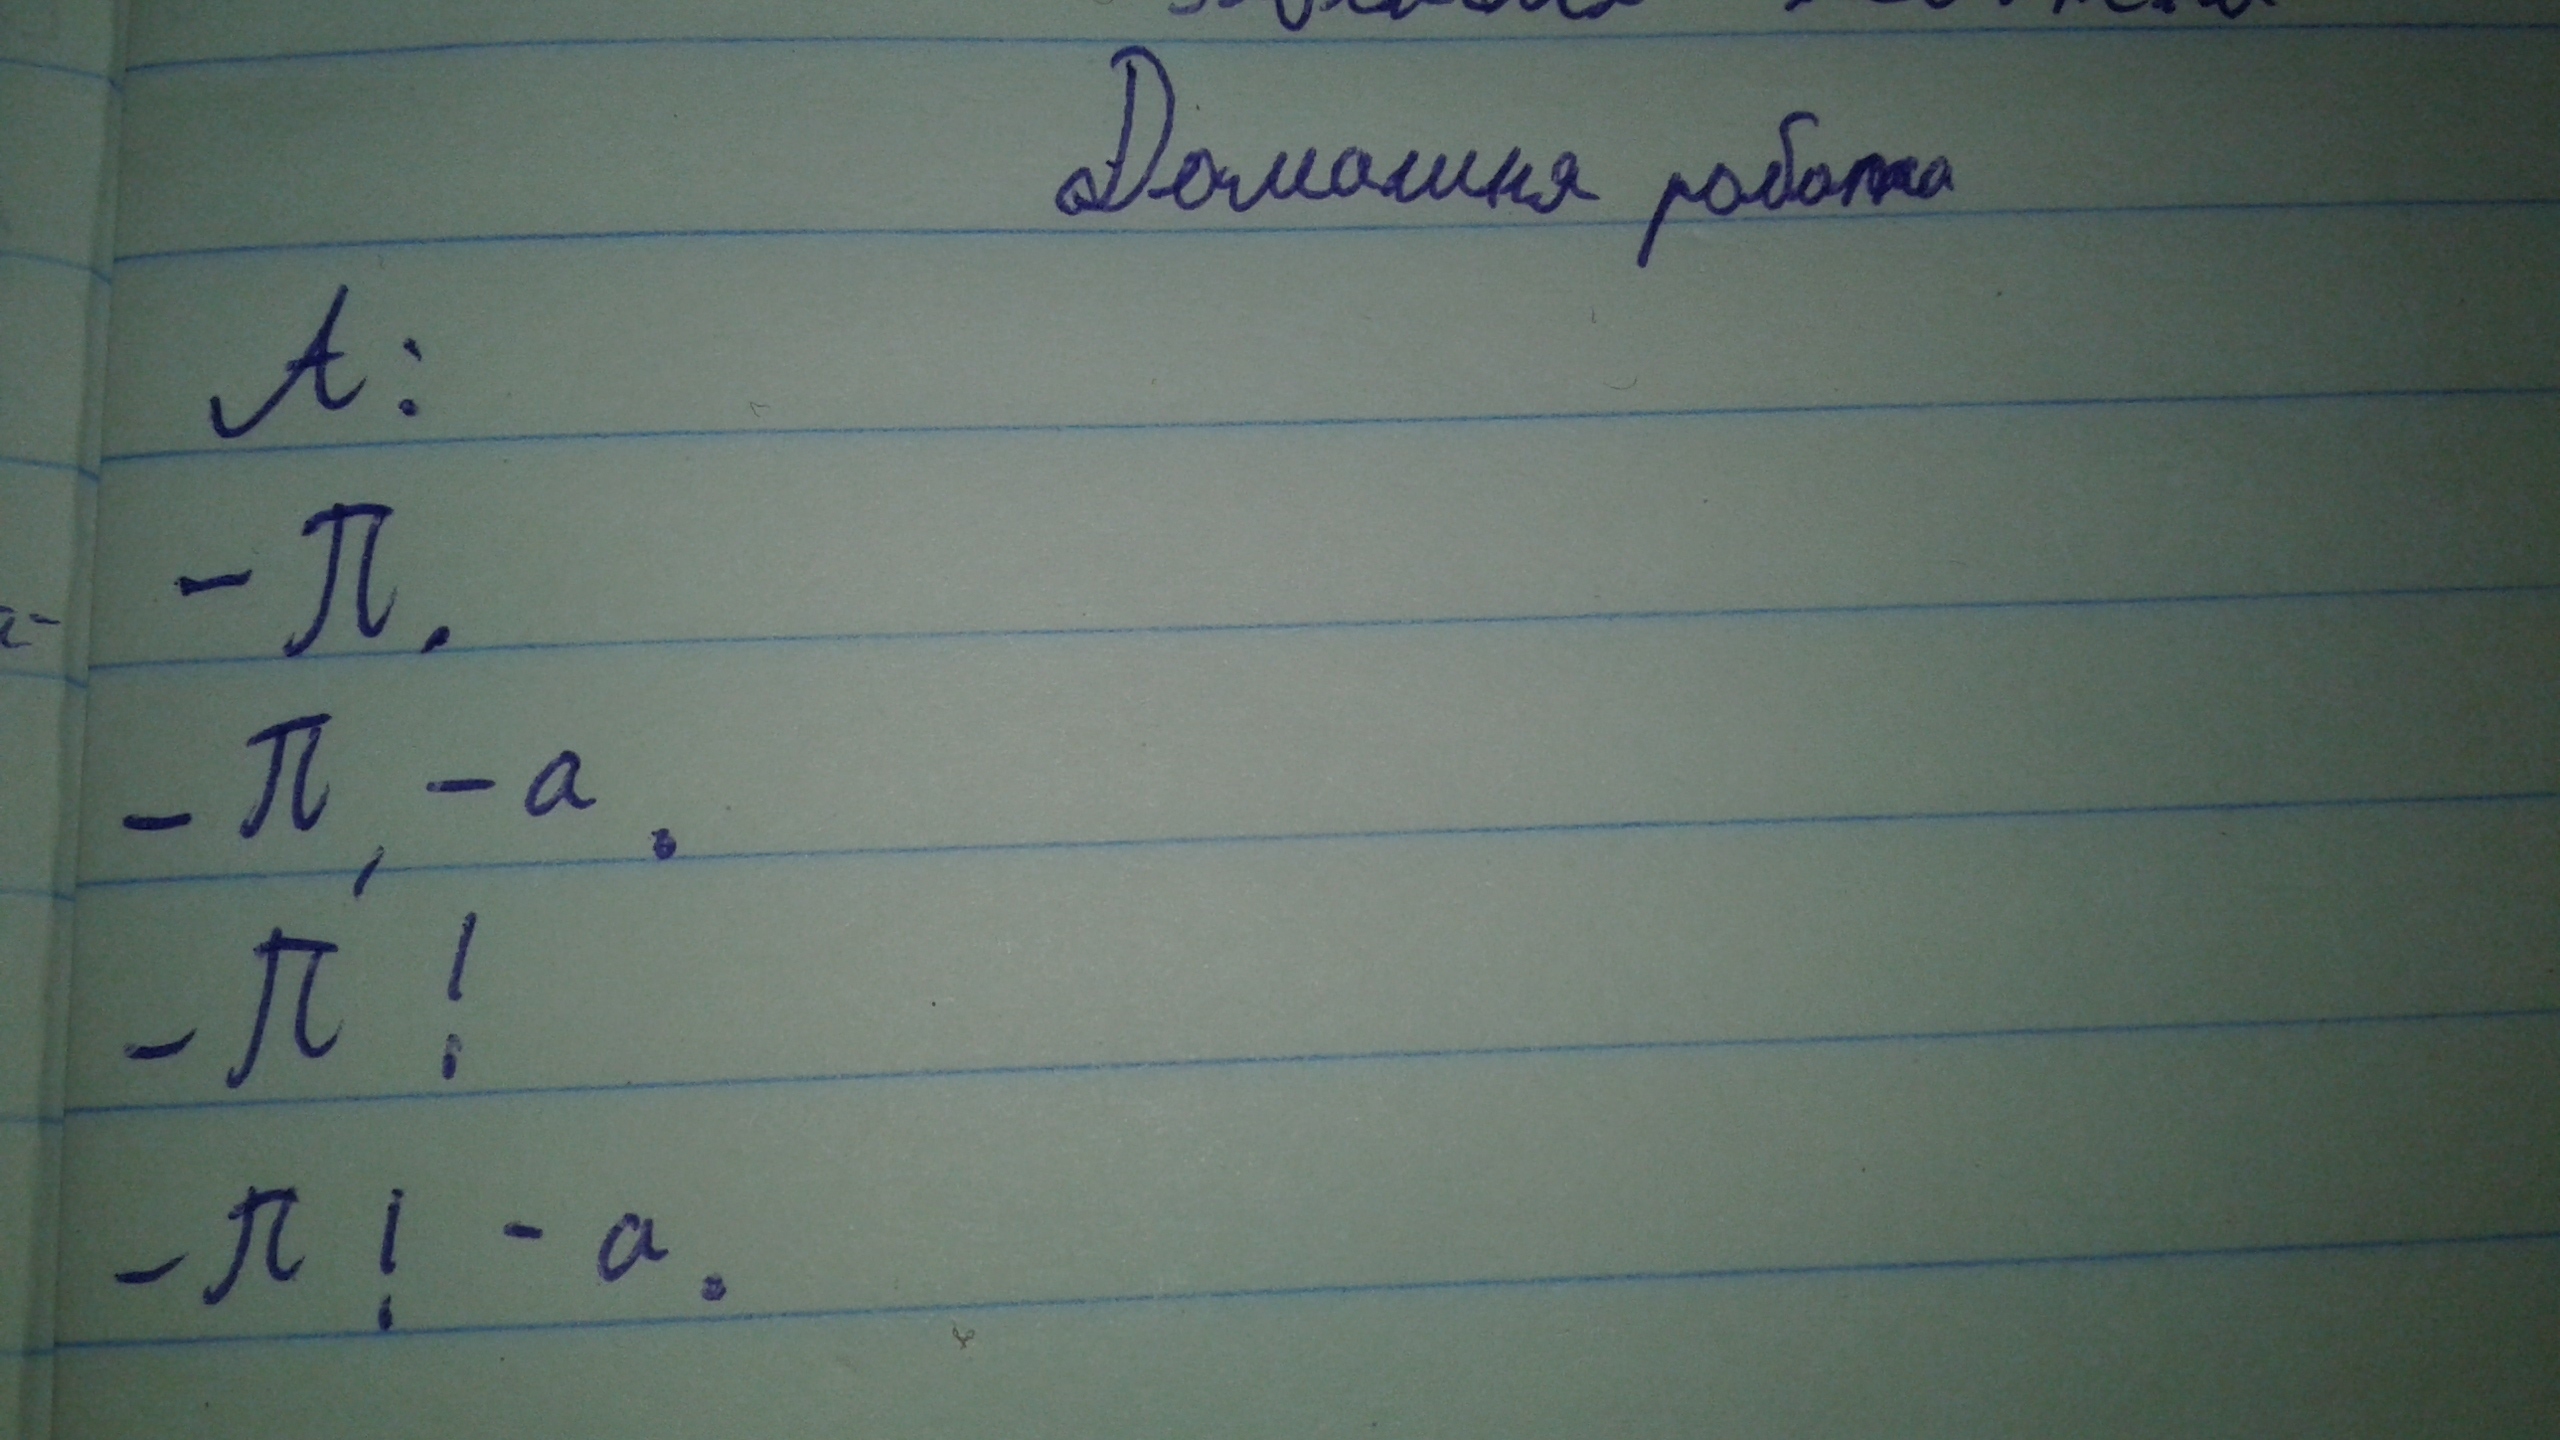 Домашня робота
А:
- П.
- П, - а.
- П!
- П! - а.